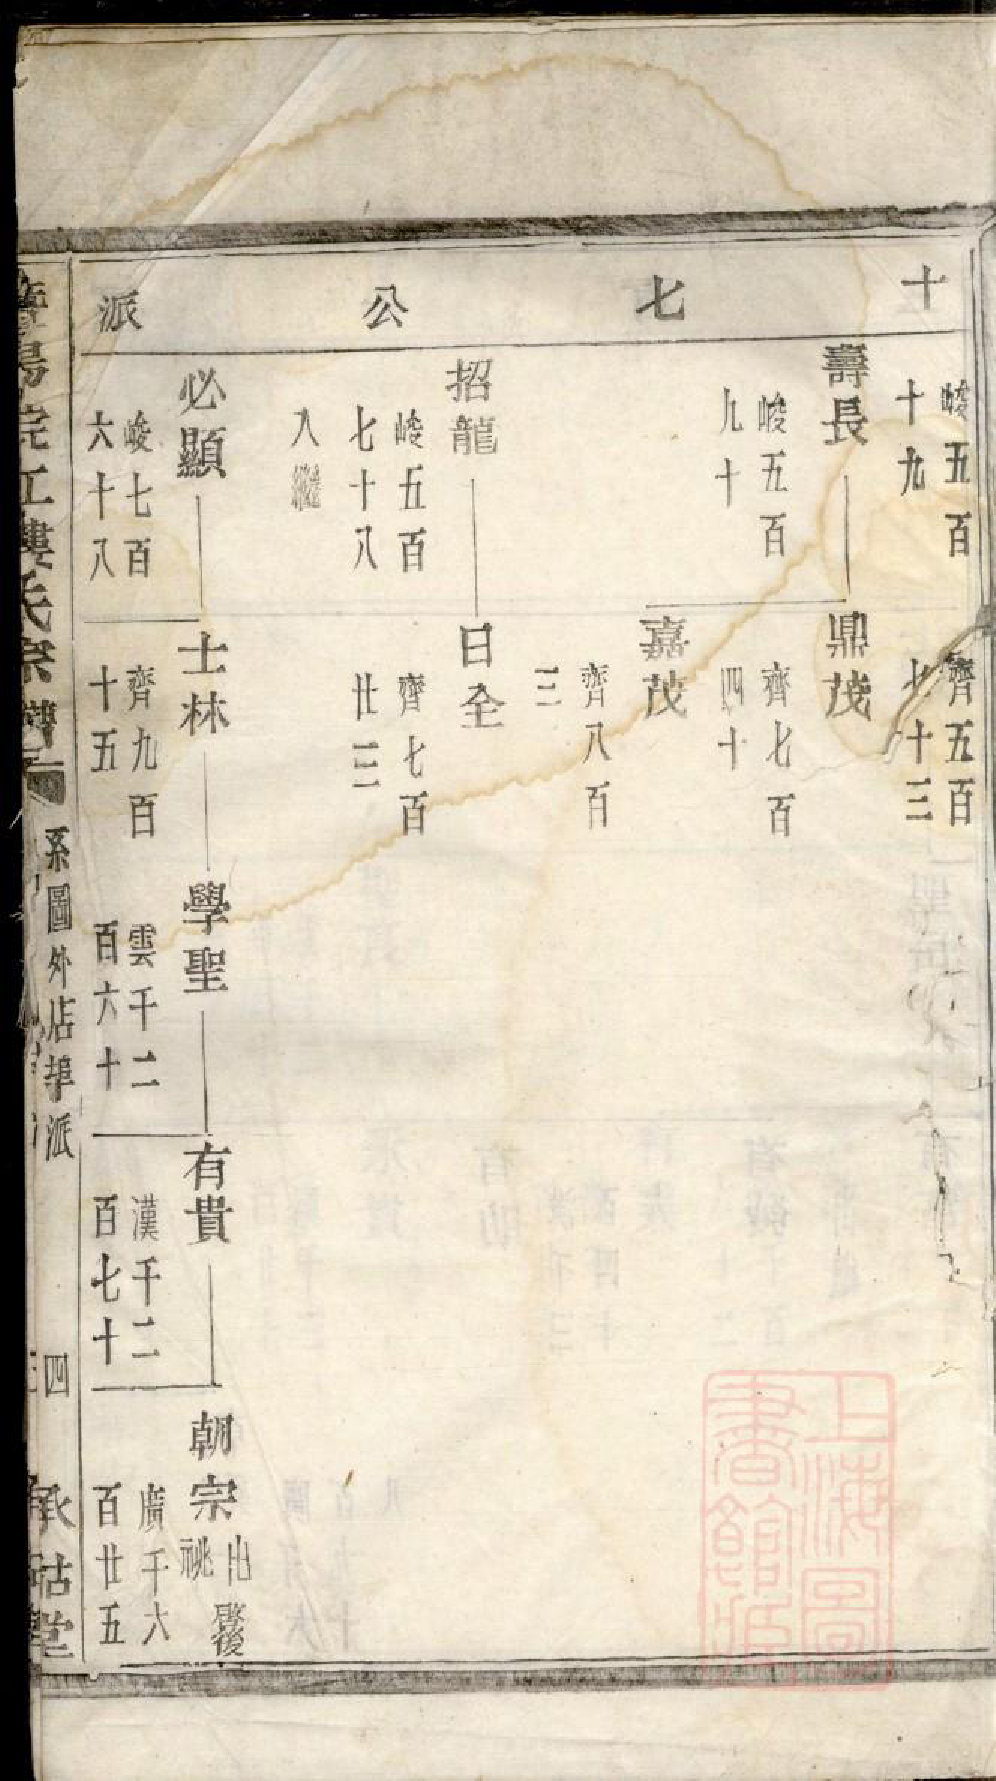 十七公派
峻五百
十九
齊五百
七十三
壽長
鼎茂
峻五百
九十
齊七百
四十
嘉茂
齊八百
三
招龍
日全
峻五百
七十八
齊七百
廿三
入繼
必顯
士林
學聖
有貴
朝宗
出
祧
峻七百
六十八
齊九百
十五
雲千二
百六十
漢千二
百七十
廣千六
百廿五
氏宗譜
系圖外店埠派
四
承祜堂
上海圖
書館藏